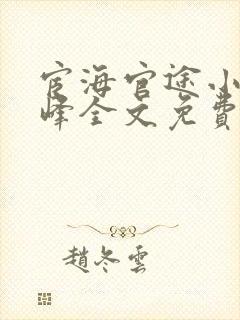 宦海官途小
峰全文免費
趙冬雲